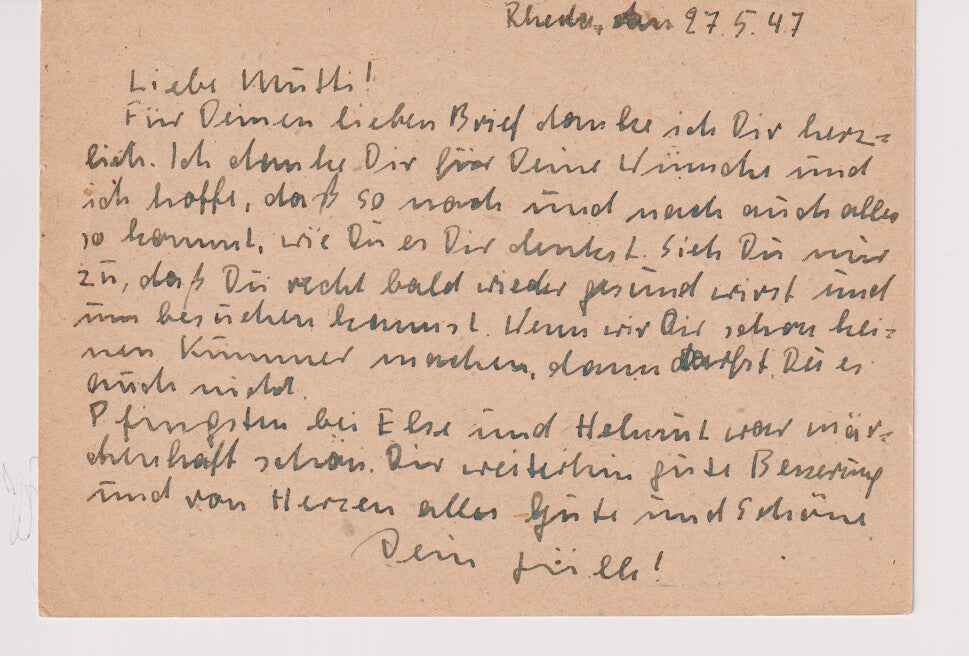 Rheda, den 27.5.47
Liebe Mutti!
Für Deinen lieben Brief danke ich Dir herz=
lich. Ich danke Dir für Deine Wünsche und
ich hoffe, daß so nach und nach auch alles
so kommt, wie Du es Dir denkst. Sieh Du nur
zu, daß Du recht bald wieder gesund wirst und
uns besuchen kannst. Wenn wir Dir schon kei=
nen Kummer machen, dann darfst Du es
auch nicht.
Pfingsten bei Else und Helmut war mär=
chenhaft schön. Dir weiterhin gute Besserung
und von Herzen alles Gute und Schöne
Dein